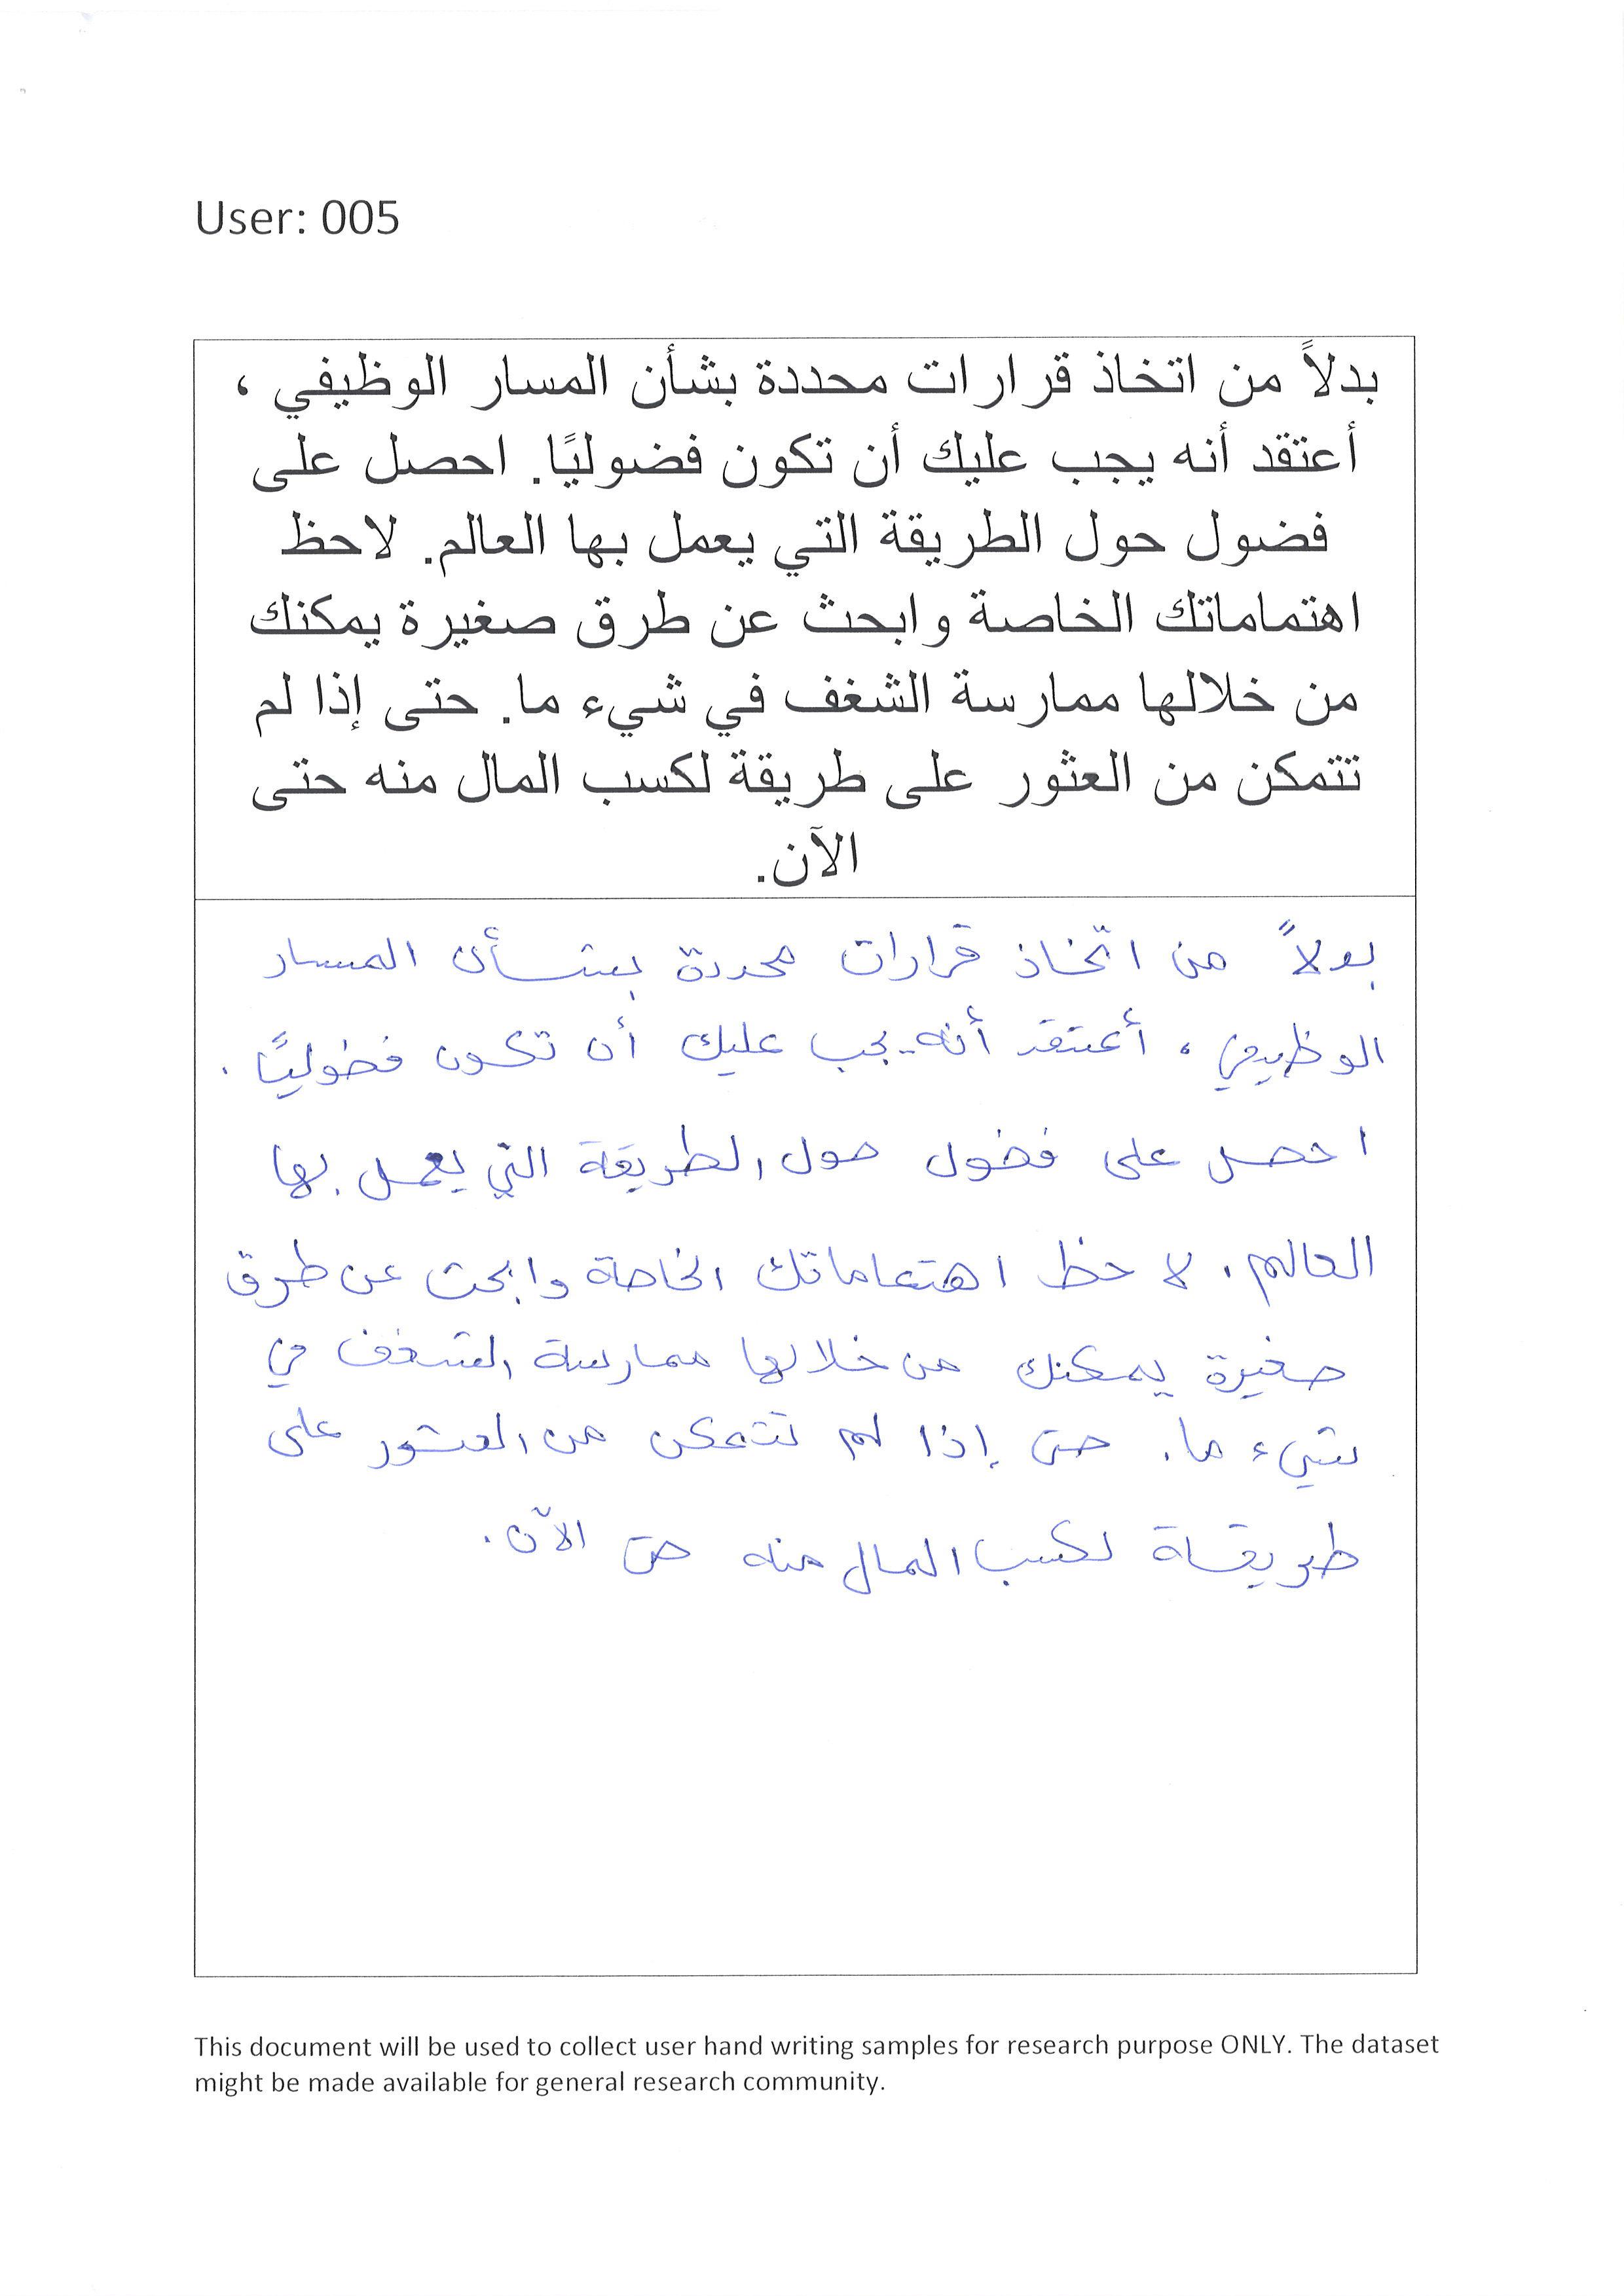 User: 005
بدلاً من اتخاذ قرارات محددة بشأن المسار الوظيفي ،
أعتقد أنه يجب عليك أن تكون فضوليًا. احصل على
فضول حول الطريقة التي يعمل بها العالم. لاحظ
اهتماماتك الخاصة وابحث عن طرق صغيرة يمكنك
من خلالها ممارسة الشغف في شيء ما. حتى إذا لم
تتمكن من العثور على طريقة لكسب المال منه حتى
الآن.
بدلاً من اتخاذ قرارات محددة بشأن المسار
الوظيفي ، أعتقد أنه يجب عليك أن تكون فضوليًا .
احصل على فضول حول الطريقة التي يعمل بها
العالم . لاحظ اهتماماتك الخاصة وابحث عن طرق
صغيرة يمكنك من خلالها ممارسة الشغف في
شيء ما . حتى إذا لم تتمكن من العثور على
طريقة لكسب المال منه حتى الآن .
This document will be used to collect user hand writing samples for research purpose ONLY. The dataset
might be made available for general research community.